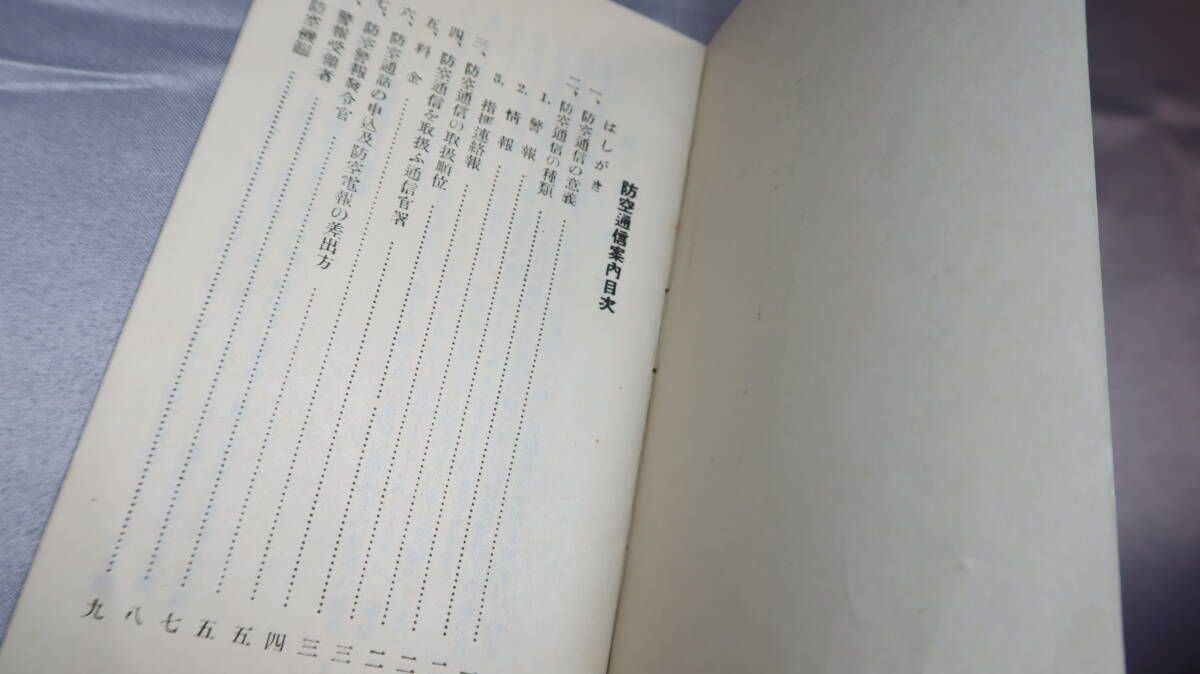 防空通信案內目次
はしがき
一、防空通信の意義
二、防空通信の種類
1. 警報
2. 情報
3. 指揮連絡報
三、防空通信の取扱順位
四、防空通信を取扱ふ通信官署
五、料金
六、防空通話の申込及防空電報の差出方
七、防空警報發令官
、警報受領者
防空機關
二
二
二
三
三
四
五
五
七
八
九